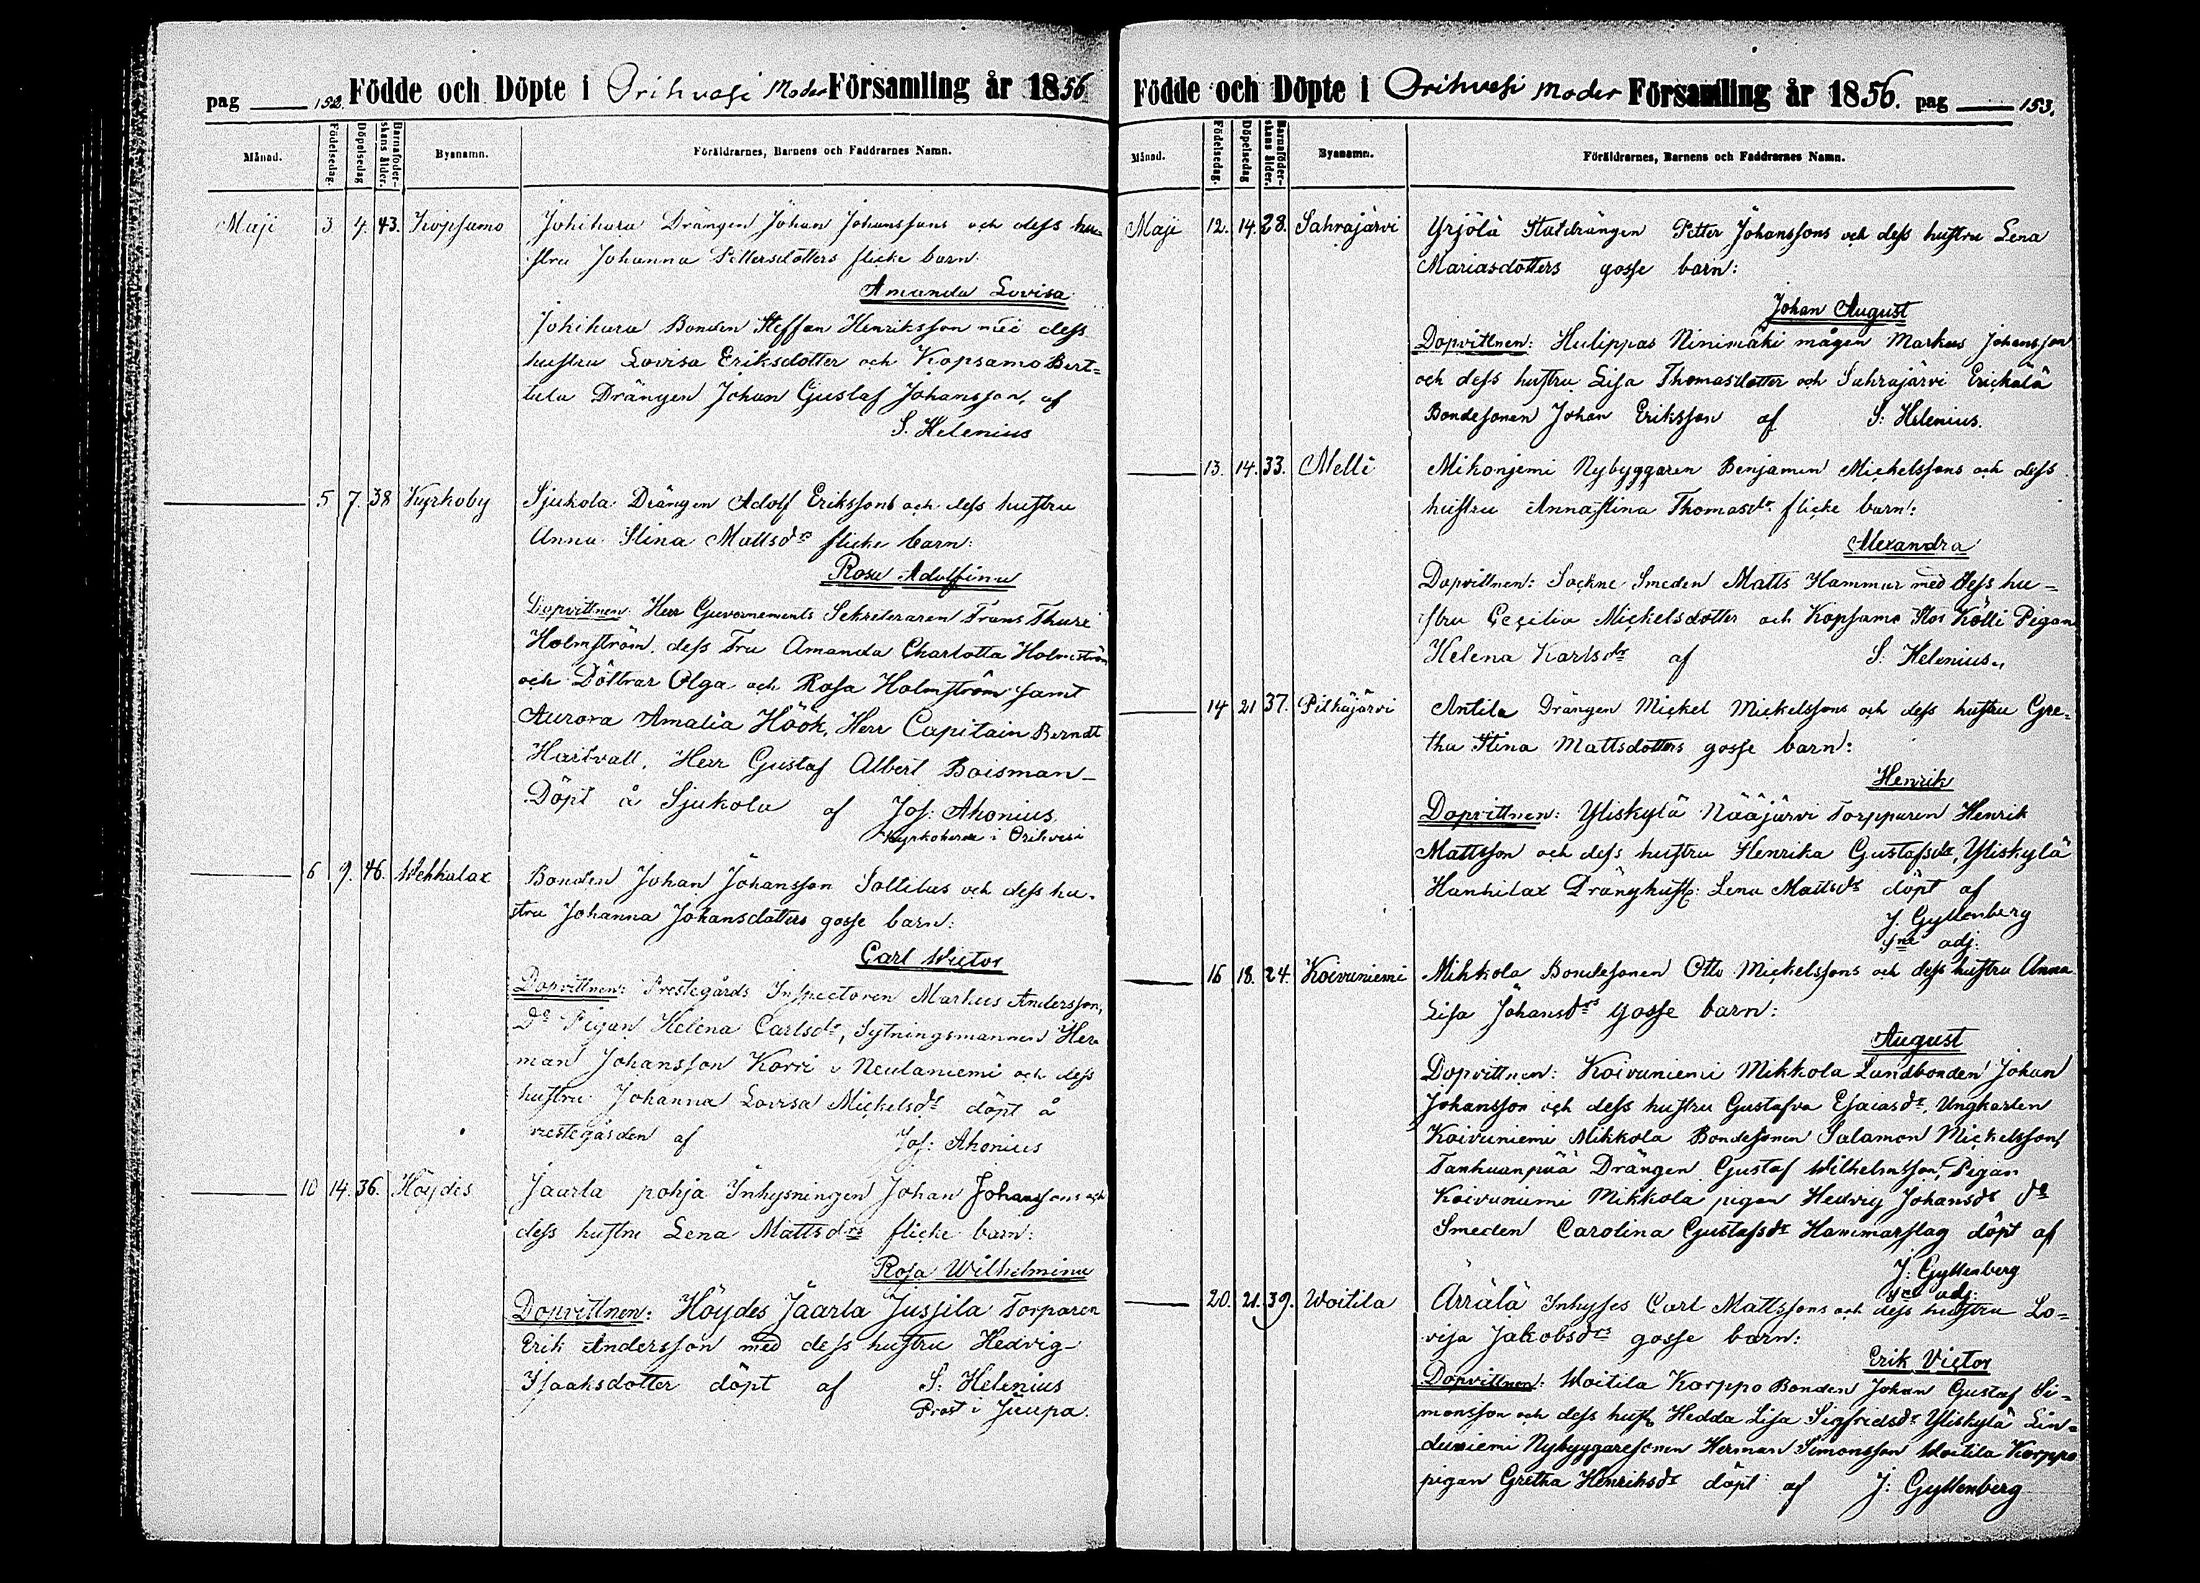 pag 152. Födde och Döpte i Orihvesi Moder Församling år 1856
Månad. Födelsedag. Döpelsedag Barnaföderskans ålder. Byanamn. Föräldrarnes, Barnens och Faddrarnes Namn.
Maji 3. 4. 43. Kopsamo Jokihara Drängen Johan Johanssons och dess hu-
stru Johanna Pettersdotters flicke barn:
Amanda Lovisa
Jokihara Bonden Steffan Henriksson med dess
hustru Lovisa Eriksdotter och Kopsamo Bert-
tula Drängen Johan Gustaf Johansson, af
S. Helenius
5 7. 38 Kyrkoby Sjukola Drängen Adolf Erikssons och dess hustru
Anna Stina Mattsdrs flicke barn:
Rosa Adolfina
Dopvittnen: Herr Guvornements Sekreteraren Frans Thure
Holmström, dess Fru Amanda Charlotta Holmström
och Döttrar Olga och Rosa Holmström samt
Aurora Amalia Höök, Herr Capitain Berndt
Hartvall, Herr Gustaf Albert Boisman—
Döpt å Sjukola af Jos: Ahonius.
Kyrkoherde i Orihvesi
6 9. 46. Wehkalax Bonden Johan Johansson Sottilas och dess hu-
stru Johanna Johansdotters gosse barn:
Carl Wictor
Dopvittnen: Prestegårds Inspectoren Markus Andersson,
Do Pigan Helena Carlsdr, Sytningsmannen Her
man Johansson Korri i Neulaniemi och dess
hustru Johanna Lovisa Mickelsdr döpt å
restegården af Jos: Ahonius
10 14. 36. Höydes Jaarla pohja Inhysningen Johan Johanssons och
dess hustru Lena Mattsdrs flicke barn:
Rosa Wilhelmina
Dopvittnen: Höydes Jaarla Jussila Torparen
Erik Andersson med dess hustru Hedvig
Isaaksdotter döpt af S: Helenius
Prost i Juupa.
Födde och Döpte i Orihvesi Moder Församling år 1856. pag 153.
Månad. Födelsedag. Döpelsedag Barnaföderskans ålder. Byanamn. Föräldrarnes, Barnens och Faddrarnes Namn.
Maji 12. 14. 28. Sahrajärvi Yrjölä Staldrängen Petter Johanssons och dess hustru Lena
Mariasdotters gosse barn:
Johan August
Dopvittnen: Hulippas Ninimäki mågen Markus Johansson
och dess hustru Lisa Thomasdotter och Sahrajärvi Erickälä
Bondesonen Johan Eriksson af S: Helenius.
13. 14. 33. Melli Mikonjemi Nybyggaren Benjamin Mickelssons och dess
hustru Annastina Thomasdr flicke barn:
Alexandra
Dopvittnen: Sockne Smeden Matts Hammar med dess hu-
stru Cecilia Mickelsdotter och Kopsamo Stor Kölli Pigan
Helena Karlsdr af S. Helenius.,
14 21 37. Pitkäjärvi Antila Drängen Mickel Mickelssons och dess hustru Gre-
tha Stina Mattsdotters gosse barn:
Henrik
Dopvittnen: Yliskylä Nääjärvi Torpparen Henrik
Mattsson och dess hustru Henrika Gustafsdr, Yliskylä
Hanhilax Dränghust: Lena Mattsdr döpt af
J. Gyllenberg
sne adj:
16 18. 24. Koivuniemi Mikkola Bondesonen Otto Mickelssons och dess hustru Anna
Lisa Johansdrs gosse barn:
August
Dopvittnen: Koivuniemi Mikkola Landbonden Johan
Johansson och dess hustru Gustafva Esaiasdr, Ungkarlen
Koivuniemi Mikkola Bondesonen Salamon Mickelsson,
Tanhuanpää Drängen Gustaf Wilhelmsson, Pigan
Koivuniemi Mikkola pigan Hedvig Johansdr do
Smeden Carolina Gustafsdr Hammarslag döpt af
J: Gyllenberg
sne adj:
20. 21. 39. Woitila Arrälä Inhyses Carl Mattssons och dess hustru Lo-
visa Jakobsdrs gosse barn:
Erik Victor
Dopvittnen: Woitila Korppo Bonden Johan Gustaf Si-
monsson och dess hust: Hedda Lisa Sigfridsdr Yliskylä Lin-
duniemi Nybyggaresonen Herman Simonsson Woitila Korppo
pigan Gretha Henriksdr döpt af J: Gyllenberg